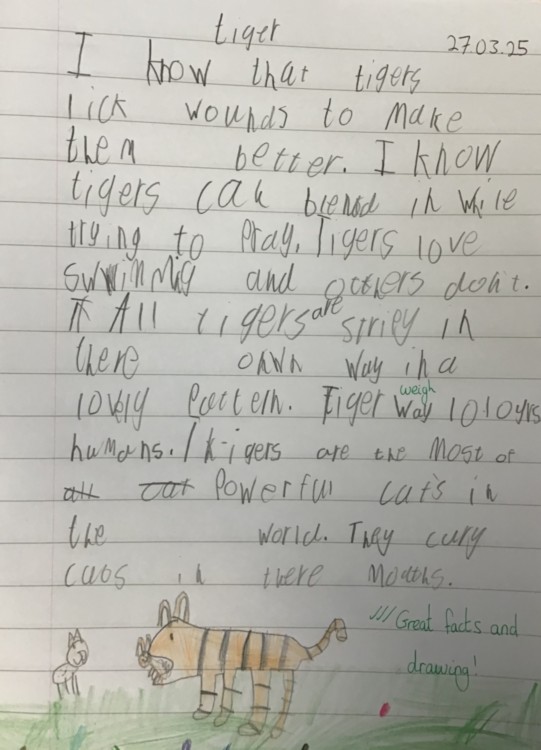 tiger
27.03.25
I know that tigers
lick wounds to make
them better. I know
tigers can blend in while
trying to Pray. Tigers love
swwinmig and others don't.
All tigers are striey in
there own way in a
lovely Pattern. Tiger weigh way 10 10yrs
humans. tigers are the most of
all cat Powerful cat's in
the world. They cary
cubs in there mouths.
/// Great facts and
drawing!